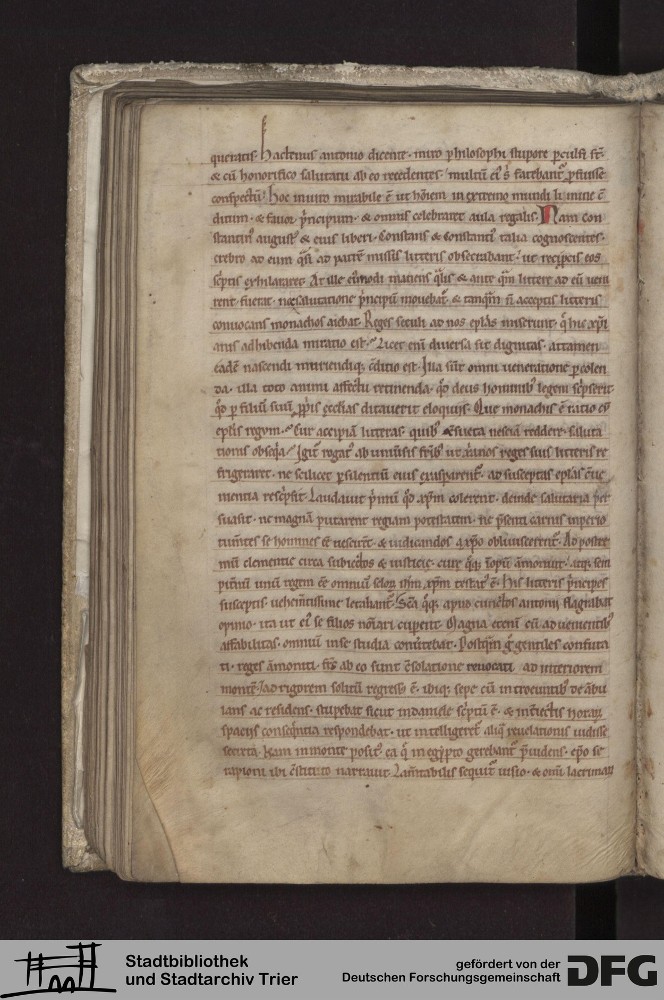 queratis. Hactenus antonio dicente. miro philosophi stupore p̱culsi st̄.
& cū honorifico salutatu ab eo recedentes. multū ei᷒ s̄ fatebant᷑ p̱fuisse
conspectū. Hoc inuito mirabile ē ut hōiem in extremo mundi limite cō
ditum. & fauor p̓ncipum. & omnis celebraret aula regalis. Nam con
stantin᷒ august᷒ & eius liberi. Constans & constanti᷒ talia cognoscentes.
crebro ad eum q̓si ad patrē missis litteris obsecrabant. ut recip̱cis eos
sc̓ptis exhilararet. At ille ei᷒modi maciens q̓lis & ante q̄m littere ad eū ueni
rent fuerat. nec salutatione p̓ncipū mouebat᷑. & tanq̄m n̄ acceptis litteris
conuocans monachos aiebat. Reges seculi ad nos ep̄las miserunt. q̄ hic xp̄i
anis adhibenda miratio est. Licet eni diuersa sit dignitas. attamen
eadē nascendi moriendiq; c̄ditio est. Illa sūt omni ueneratione p̱colen
da. illa toto animi affectu retinenda. q̄d deus hominib᷒ legem sc̓pserit
q̄d p̱ filiū suū p̱p̓is ecclias ditauerit eloquiis. Que monachis ē ratio cū
ep̄lis regum. Cur accipiā litteras. quib᷒ c̄sueta nesciā reddere. saluta
tionis obseq̓a. Igit᷑ rogat᷒ ab uniu̓sis fr̄ib᷒ ut xp̄ianos reges suis litteris re
frigeraret. ne scilicet p̱ silentiū eius exasparent᷑. ad susceptas ep̄las c̄ue
nientia resc̓psit. Laudauit p̓mū q̄d xp̄m colerent. deinde salutaria p̱
suasit. ne magnā putarent regiam potestatem. ne p̄senti carnis inperio
tum̄tes se homines eē nescirēt. & iudicandos a xp̄o obliuiscerent᷑. Ad postre
mū clementie circa subiectos & iusticie. cure q̄q; īopū āmonuit. atq; sem
pit̓nū unū regem eē omniū sclor̄ ih̄m xp̄m testat᷒ ē. His litteris p̓ncipes
susceptis uehem̄tissime letabant᷑. Sc̄a q̄q; apud cunctos antonii flagrabat
opinio. ita ut ei᷒ se filios nōiari cuperent. Magna eteni cū aduenientib᷒
affabilitas. omniū in se studia conu̓tebat. Postq̄m g̓ gentiles confuta
ti. reges āmoniti. fr̄s ab eo sunt c̄solatione reuocati. ad interiorem
montē & ad rigorem solitū regress᷒ ē. ibiq; sepe cū introeuntib᷒ deābu
lans ac residens. stupebat sicut in daniele sc̓ptū ē. & int̓iectis horar̄
spaciis conseq̄ntia respondebat. ut intelligeret᷑ aliq̄ reuelationis uidisse
secreta. Nam in monte posit᷒. ea q̄ in egypto gerebant᷑ p̄uidens. ep̄o se
rapioni ibi c̄stituto narrauit. Lam̄tabilis sequit᷑ uisio. & om̄i lacrimar̄
Stadtbibliothek
und Stadtarchiv Trier
gefördert von der
Deutschen Forschungsgemeinschaft
DFG